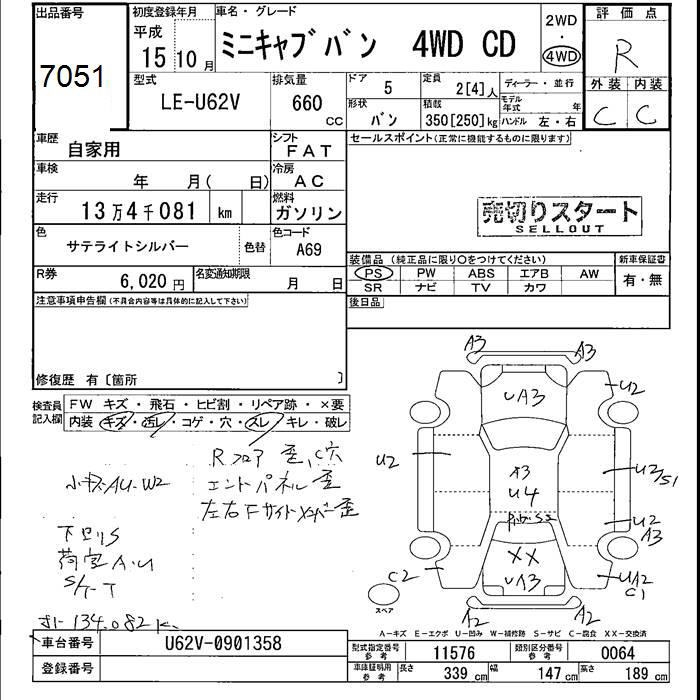 出品番号
7051
初度登録年月
平成
15年10月
車名・グレード
ミニキャブバン 4WD CD
2WD
・
4WD
評価点
R
外装 内装
C C
型式
LE-U62V
排気量
660 CC
ドア
5
形状
バン
定員
2[4]人
積載
350[250]kg
ディーラー・並行
モデル年式 年
ハンドル 左・右
車歴
自家用
シフト
FAT
車検
年 月( 日)
冷房
AC
走行
13万4千081 km
燃料
ガソリン
色
サテライトシルバー
色替
色コード
A69
R券
6,020円
名変通知期限
月 日
セールスポイント(正常に機能するものに限ります)
売切りスタート
SELLOUT
装備品(純正品に限り○をつけてください)
PS PW ABS エアB AW
SR ナビ TV カワ
新車保証書
有・無
後日品
注意事項申告欄(不具合内容等は具体的に記入して下さい)
修復歴 有〔箇所 〕
検査員記入欄
FW キズ・飛石・ヒビ割・リペア跡・×要
内装 キズ・汚レ・コゲ・穴・スレ・キレ・破レ
Rフロア 歪、C穴
エンドパネル 歪
小キズAU.W2
下回りS
荷室A.U
134.082K
A3
A3
UA3
U2
U2
A3
U4
U2/S1
U2
A3
XX
UA3
C2
UA2
C1
A2
A2
スペア
A-キズ E-エクボ U-凹み W-補修跡 S-サビ C-腐食 XX-交換済
車台番号
U62V-0901358
登録番号
型式指定番号 参考
11576
類別区分番号 参考
0064
車庫証明用 参考
長さ 339cm 幅 147cm 高さ 189cm